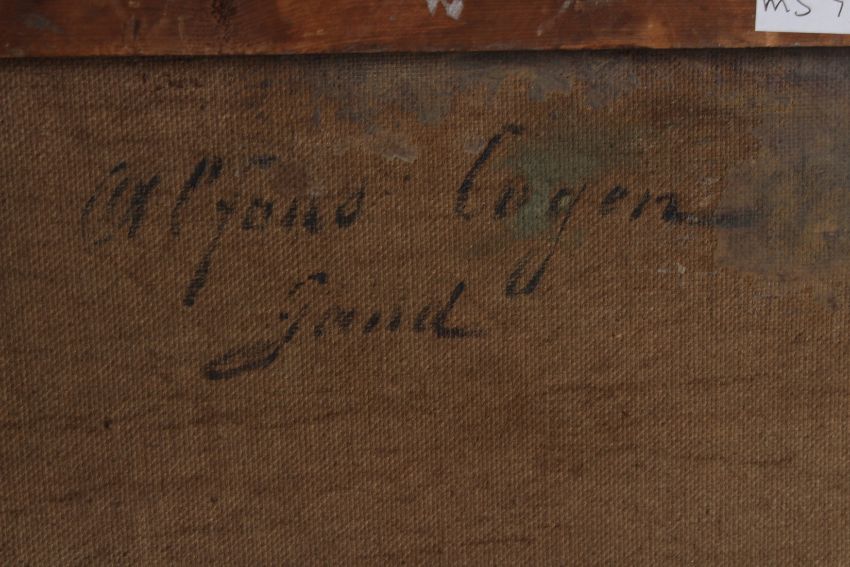 MS
Alfons Cogen
Gand